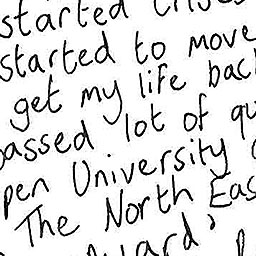 started
started to move
get my life back
passed lot of qu
pen University
The North Eas
ward'